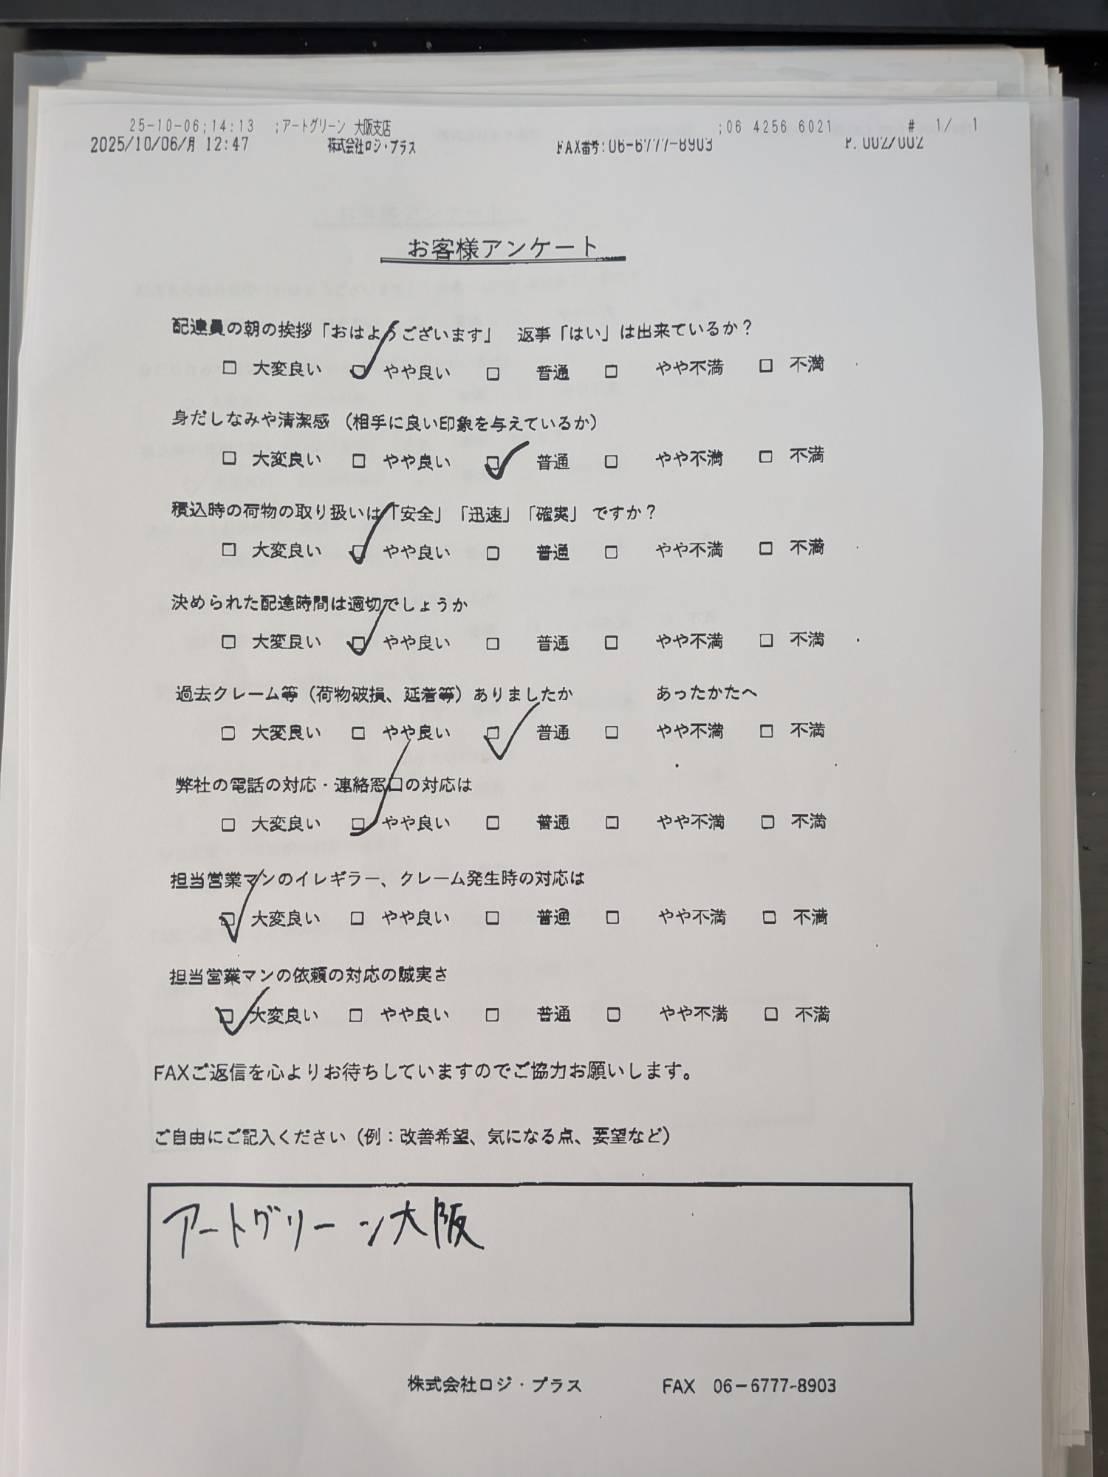 25-10-06;14:13 ;アートグリーン 大阪支店 ;06 4256 6021 # 1/ 1
2025/10/06/月 12:47 株式会社ロジ・プラス FAX番号:06-6777-8903 P.002/002
お客様アンケート
配達員の朝の挨拶「おはようございます」 返事「はい」は出来ているか？
□ 大変良い ☑ やや良い □ 普通 □ やや不満 □ 不満
身だしなみや清潔感 （相手に良い印象を与えているか）
□ 大変良い □ やや良い ☑ 普通 □ やや不満 □ 不満
積込時の荷物の取り扱いは「安全」「迅速」「確実」ですか？
□ 大変良い ☑ やや良い □ 普通 □ やや不満 □ 不満
決められた配達時間は適切でしょうか
□ 大変良い ☑ やや良い □ 普通 □ やや不満 □ 不満
過去クレーム等（荷物破損、延着等）ありましたか あったかたへ
□ 大変良い □ やや良い ☑ 普通 □ やや不満 □ 不満
弊社の電話の対応・連絡窓口の対応は
□ 大変良い ☑ やや良い □ 普通 □ やや不満 □ 不満
担当営業マンのイレギラー、クレーム発生時の対応は
☑ 大変良い □ やや良い □ 普通 □ やや不満 □ 不満
担当営業マンの依頼の対応の誠実さ
☑ 大変良い □ やや良い □ 普通 □ やや不満 □ 不満
FAXご返信を心よりお待ちしていますのでご協力お願いします。
ご自由にご記入ください（例：改善希望、気になる点、要望など）
アートグリーン大阪
株式会社ロジ・プラス FAX 06-6777-8903